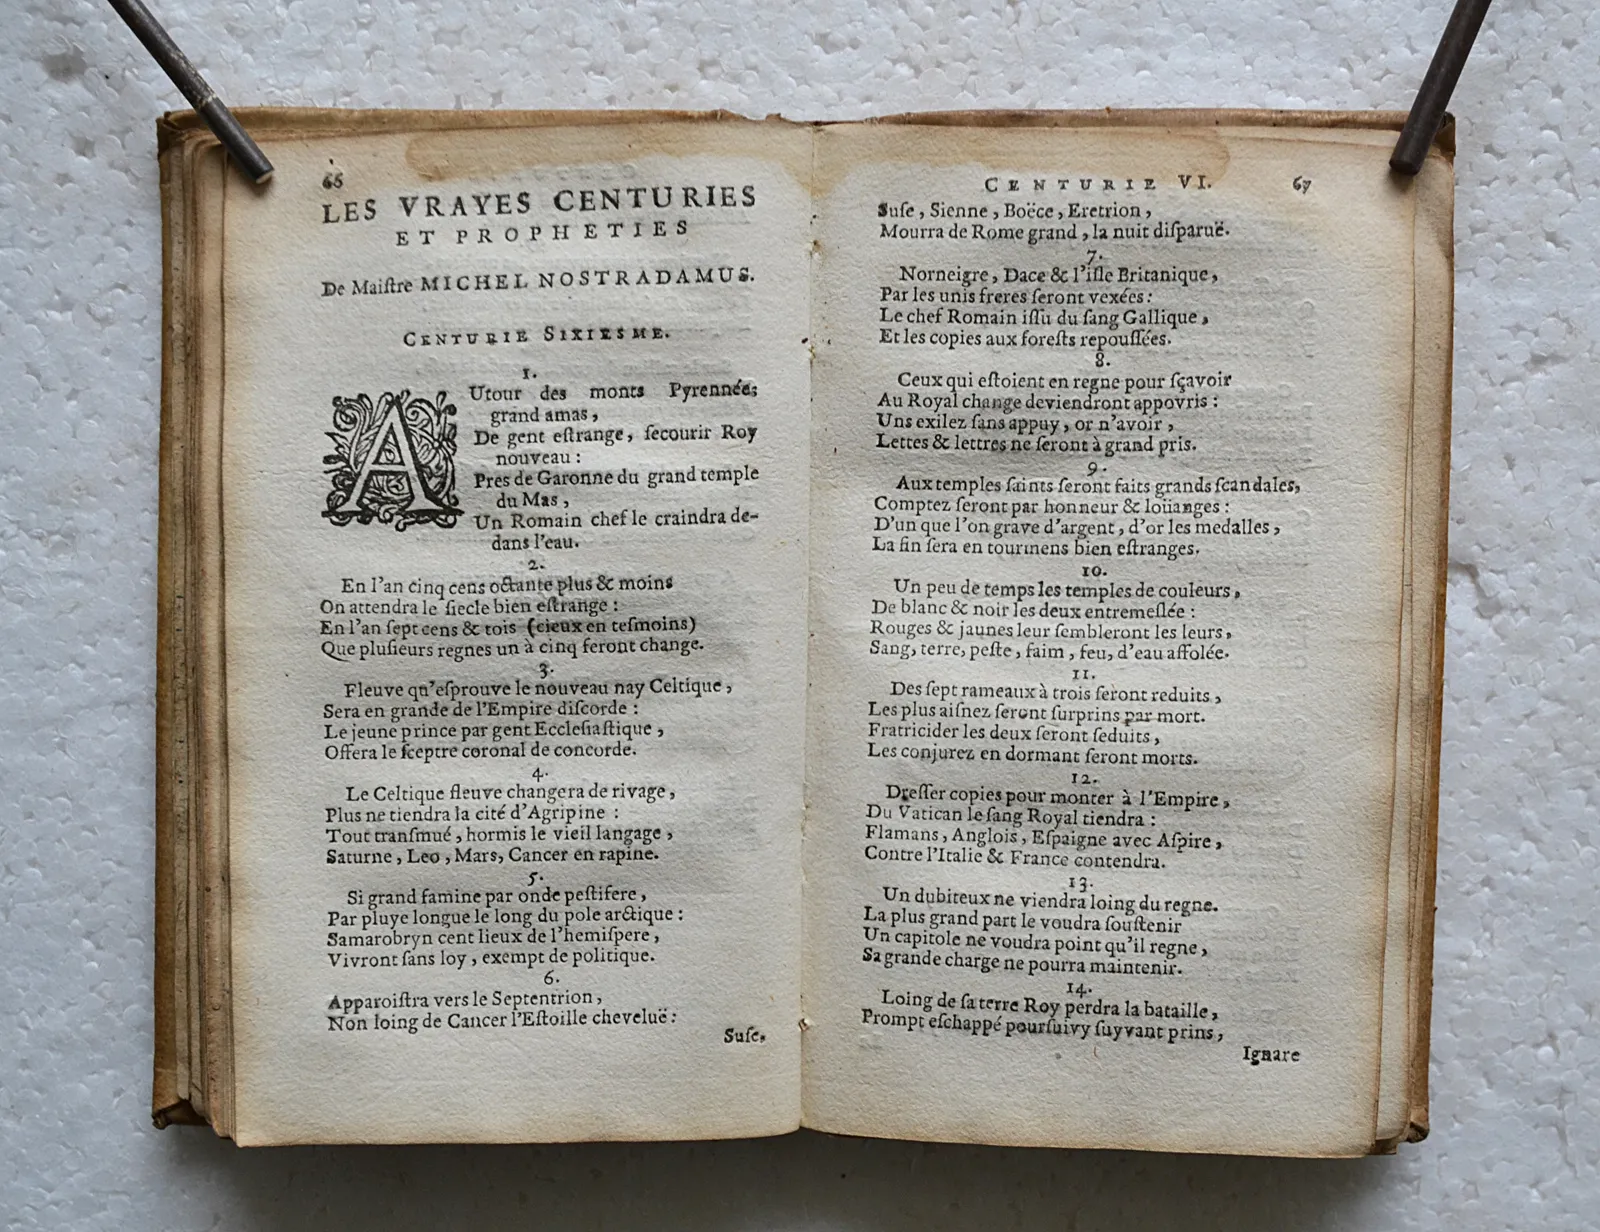 66
LES VRAYES CENTURIES
ET PROPHETIES
De Maiſtre MICHEL NOSTRADAMUS.
CENTURIE SIXIESME.
1.
AUtour des monts Pyrennées
grand amas,
De gent eſtrange, ſecourir Roy
nouveau :
Pres de Garonne du grand temple
du Mas,
Un Romain chef le craindra de-
dans l'eau.
2.
En l'an cinq cens octante plus & moins
On attendra le ſiecle bien eſtrange :
En l'an ſept cens & tois (cieux en teſmoins)
Que pluſieurs regnes un à cinq feront change.
3.
Fleuve qu'eſprouve le nouveau nay Celtique,
Sera en grande de l'Empire diſcorde :
Le jeune prince par gent Eccleſiaſtique,
Offera le ſceptre coronal de concorde.
4.
Le Celtique fleuve changera de rivage,
Plus ne tiendra la cité d'Agripine :
Tout tranſmué, hormis le vieil langage,
Saturne, Leo, Mars, Cancer en rapine.
5.
Si grand famine par onde peſtifere,
Par pluye longue le long du pole arctique :
Samarobryn cent lieux de l'hemiſpere,
Vivront ſans loy, exempt de politique.
6.
Apparoiſtra vers le Septentrion,
Non loing de Cancer l'Eſtoille cheveluë :
Suſe,
CENTURIE VI. 67
Suſe, Sienne, Boëce, Eretrion,
Mourra de Rome grand, la nuit diſparuë.
7.
Norneigre, Dace & l'iſle Britanique,
Par les unis freres ſeront vexées :
Le chef Romain iſſu du ſang Gallique,
Et les copies aux foreſts repouſſées.
8.
Ceux qui eſtoient en regne pour ſçavoir
Au Royal change deviendront appovris :
Uns exilez ſans appuy, or n'avoir,
Lettes & lettres ne ſeront à grand pris.
9.
Aux temples ſaints ſeront faits grands ſcandales,
Comptez ſeront par honneur & loüanges :
D'un que l'on grave d'argent, d'or les medalles,
La fin ſera en tourmens bien eſtranges.
10.
Un peu de temps les temples de couleurs,
De blanc & noir les deux entremeſlée :
Rouges & jaunes leur ſembleront les leurs,
Sang, terre, peſte, faim, feu, d'eau affolée.
11.
Des ſept rameaux à trois ſeront reduits,
Les plus aiſnez ſeront ſurprins par mort.
Fratricider les deux ſeront ſeduits,
Les conjurez en dormant ſeront morts.
12.
Dreſſer copies pour monter à l'Empire,
Du Vatican le ſang Royal tiendra :
Flamans, Anglois, Eſpaigne avec Aſpire,
Contre l'Italie & France contendra.
13.
Un dubiteux ne viendra loing du regne.
La plus grand part le voudra ſouſtenir
Un capitole ne voudra point qu'il regne,
Sa grande charge ne pourra maintenir.
14.
Loing de ſa terre Roy perdra la bataille,
Prompt eſchappé pourſuivy ſuyvant prins,
Ignare